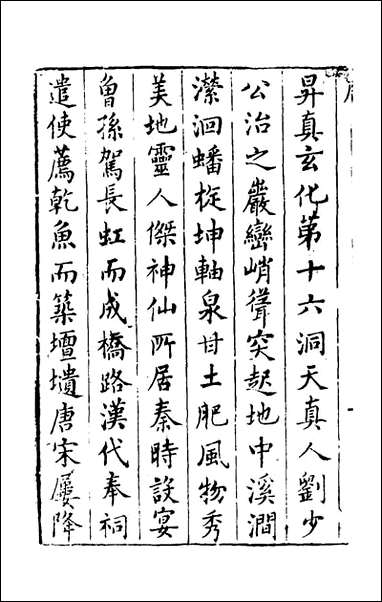 昇真玄化苐十六洞天真人劉少
公治之巖巒峭聳突起地中溪澗
瀠洄蟠㨀坤軸泉甘土肥風物秀
美地靈人傑神仙所居秦時設宴
曾孫駕長虹而成橋路漢代奉祠
遣使薦乾魚而築壇墳唐宋屢降